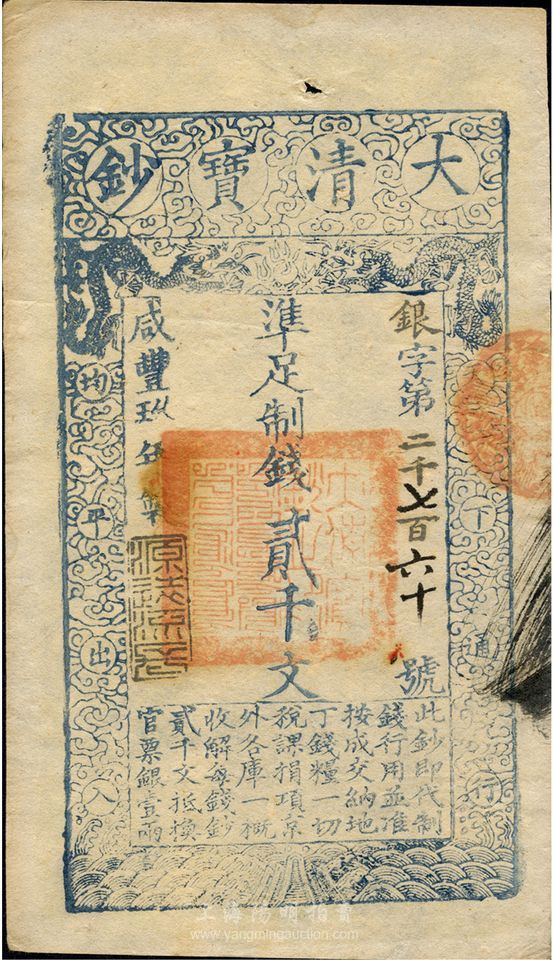 大清寶鈔
天下通行
均平出入
銀字第二千七百六十號
準足制錢貳千文
咸豐玖年製
此鈔即代制
錢行用並准
按成交納地
丁錢糧一切
稅課捐項京
外各庫一概
收解每錢鈔
貳千文抵換
官票銀壹兩
上海陽明拍賣
www.yangmingauction.com